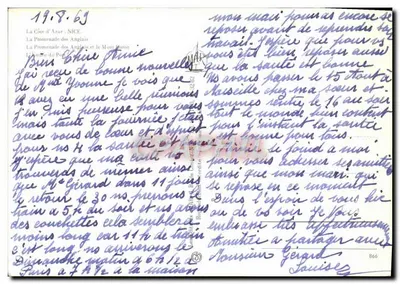 19.8.69
La Côte d'Azur - NICE
La Promenade des Anglais
La Promenade des Anglais et le Mont Boron
Bien Chère Amie
J'ai reçu de bonne nouvelles
de Mme Yvonne je vois que
avez eu une belle réunion
heureuse pour vous
mais toute la journée j'étais
avec vous de cœur et d'esprit
pour ns 4 la santé
J'espère que ma carte vs
trouverds de même ainsi
que Mr Girard dans 11 jours
le retour le 30 ns prenons le
train a 5 h du soir et ns avons
des couchettes cela semblera
moins long car 11 h de train
c'est long ns arriverons le
Dimanche matin a 6 h 1/2 a
Paris a 7 h 1/2 a la maison
mon mari pour as encore se
reposer avant de reprendre son
travail. J'espère que pour vs
vous êtes bien reposer aussi
la santé est bonne
Ns avons passer le 15 Août a
Marseille chez ma sœur et
sommes rentré le 16 au soir
tout le monde bien content
pour l'instant la santé
est bonne pour tous.
je joind a moi
pour vous adresser ses amitiés
ainsi que mon mari qui
se repose en ce moment
Dans l'espoir de vous lire
ou de vs voir Je Vous
embrasse très affectueusement
Amitiée a partager avec
Monsieur Girard
Louise